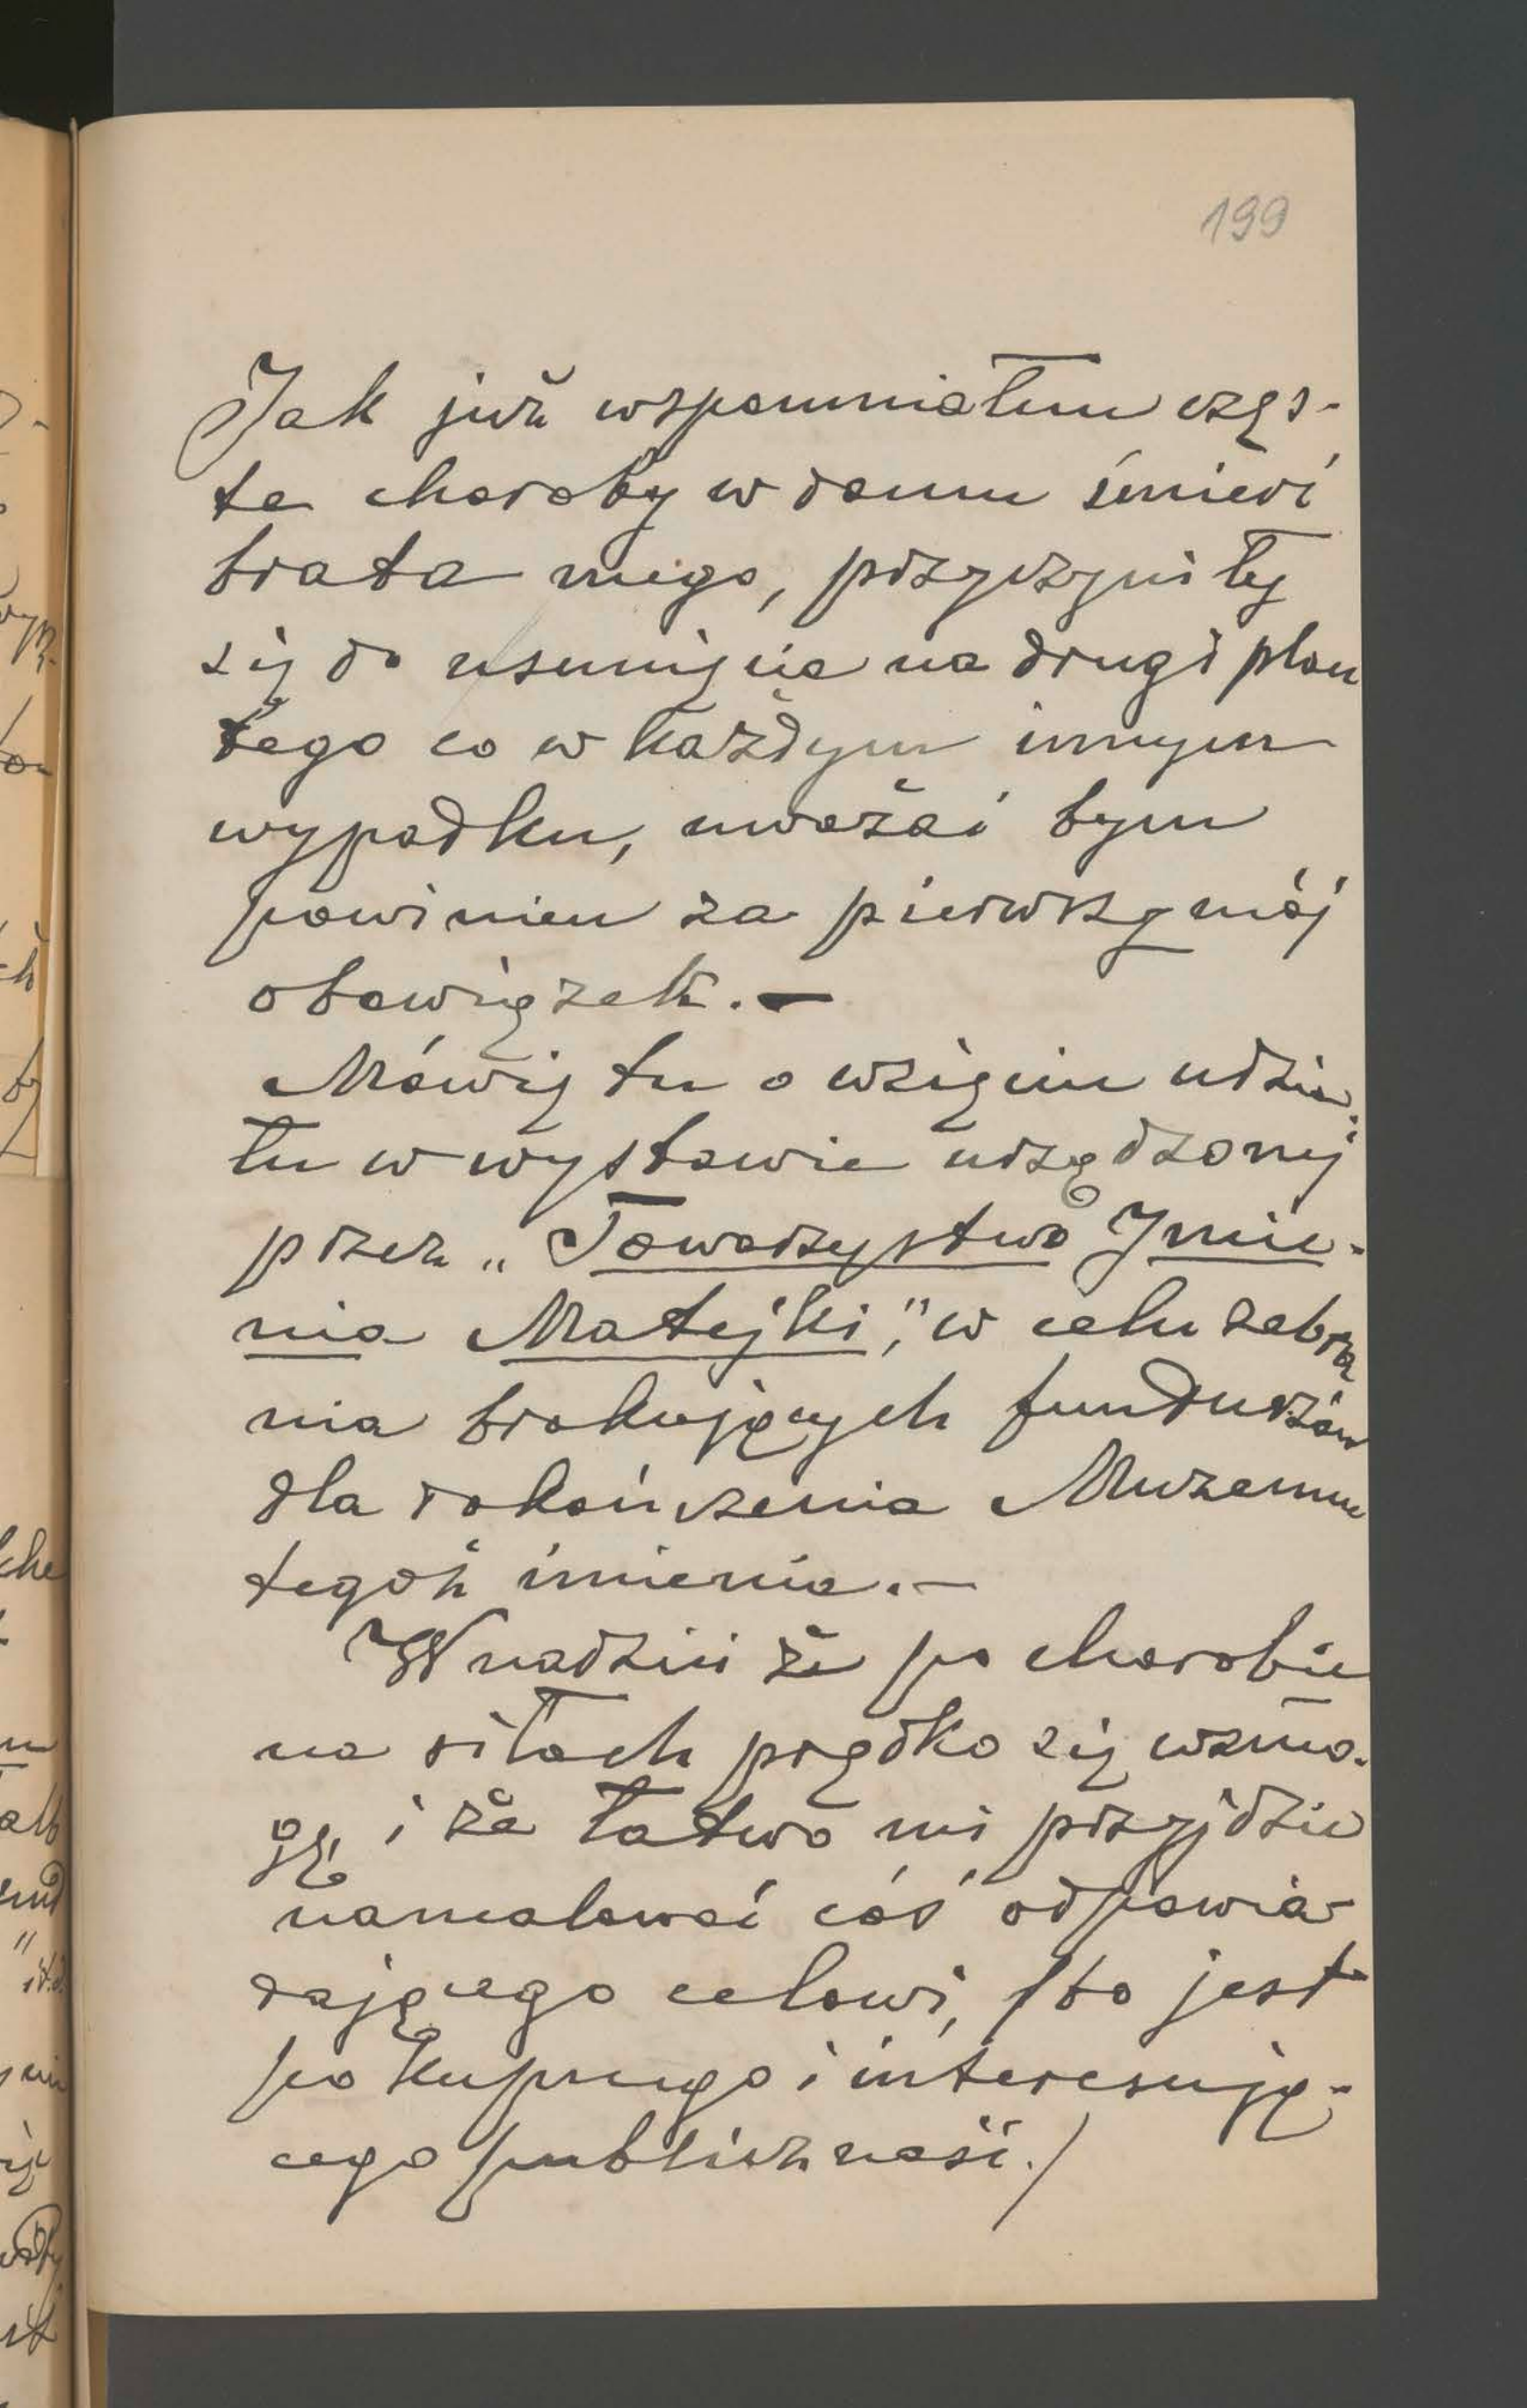 199
Jak już wspomniałem częs-
te choroby w domu śmierć
brata mego, przyczyniły
się do usunięcia na drugi plan
tego co w każdym innym
wypadku, uważać bym
powinien za pierwszy mój
obowiązek.—
Mówię tu o wzięciu udzia-
łu w wystawie urządzonej
przez „Towarzystwo Imie-
nia Matejki", w celu zebra
nia brakujących funduszów
dla dokończenia Muzeum
tegoż imienia.—
W nadziei że po chorobie
na siłach prędko się wzmo-
gę i że łatwo mi przyjdzie
namalować coś odpowia-
dającego celowi, /to jest
pokupnego i interesują-
cego publiczność./